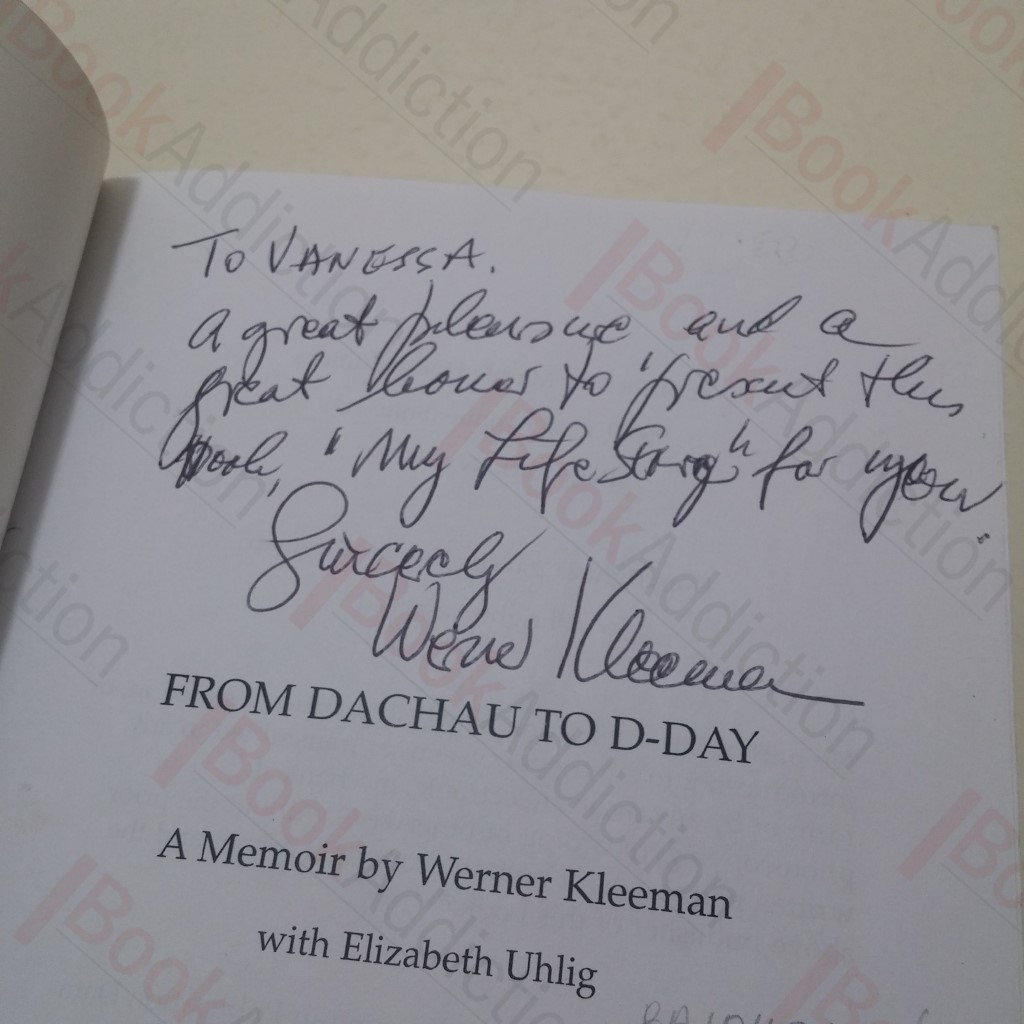 To VANESSA.
A great pleasure and a
great honor to present this
book, "My Life Story" for you.
Sincerely
Werner Kleeman
FROM DACHAU TO D-DAY
A Memoir by Werner Kleeman
with Elizabeth Uhlig
BookAddiction